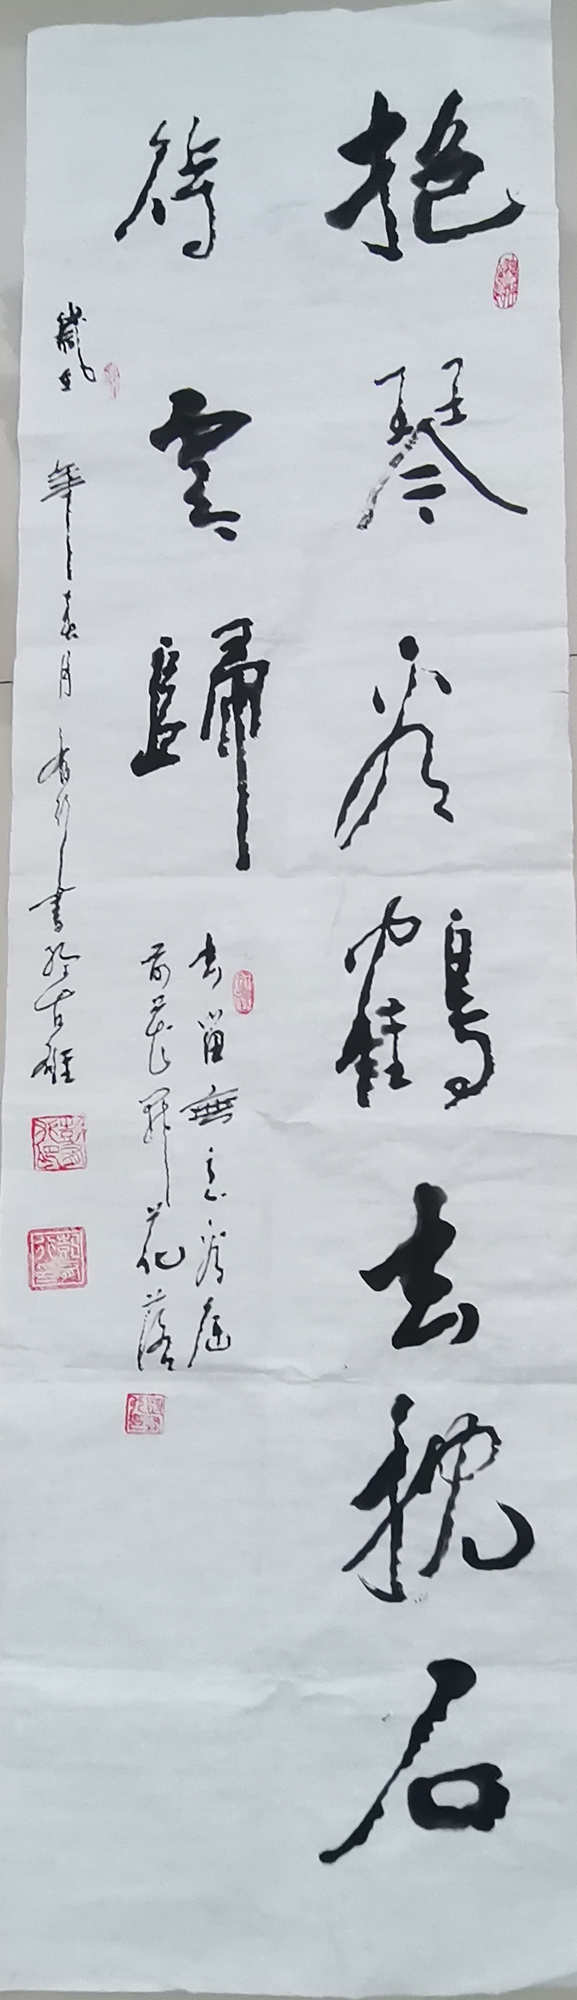 抱琴看鶴去枕石
待雲歸
去留無意看庭
前花開花落
歲在
年春月
書於古雄